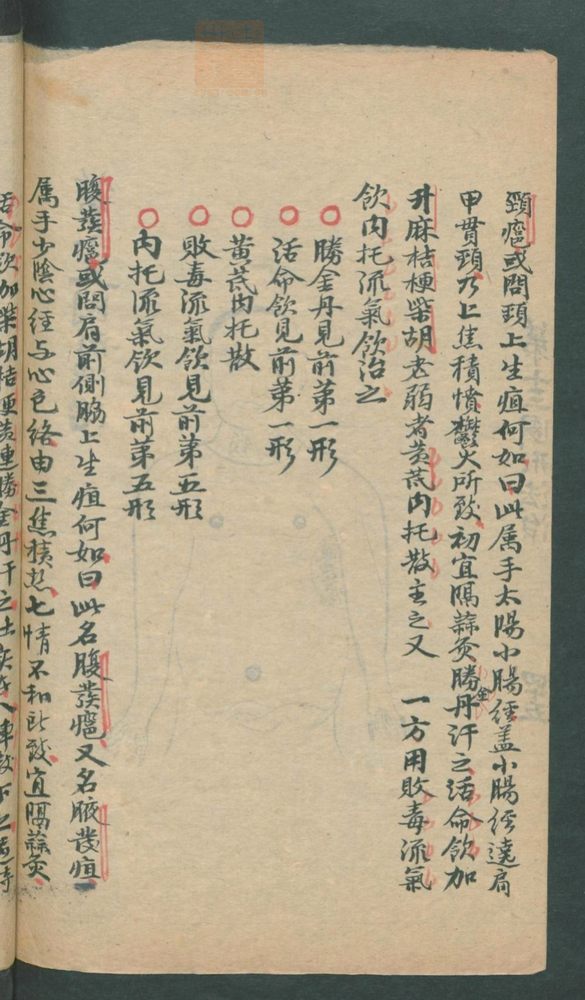 頸癰或問頸上生疽何如曰此属手太陽小腸經盖小腸經遶肩
甲貫頸乃上焦積憤鬱火所致初宜隔蒜灸勝金丹汗之活命飲加
升麻桔梗柴胡老弱者黃芪内托散主之又 一方用敗毒流氣
飲内托流氣飲治之
○ 勝金丹見前第一形
○ 活命飲見前第一形
○ 黃芪内托散
○ 敗毒流氣飲見前第五形
○ 内托流氣飲見前第五形
腹發癰或問肩前側脇上生疽何如曰此名腹發癰又名腋發疽
属手少陰心經与心包絡由三焦積熱七情不和所致宜隔蒜灸
活命飲加柴胡桔梗黃連勝金丹汗之